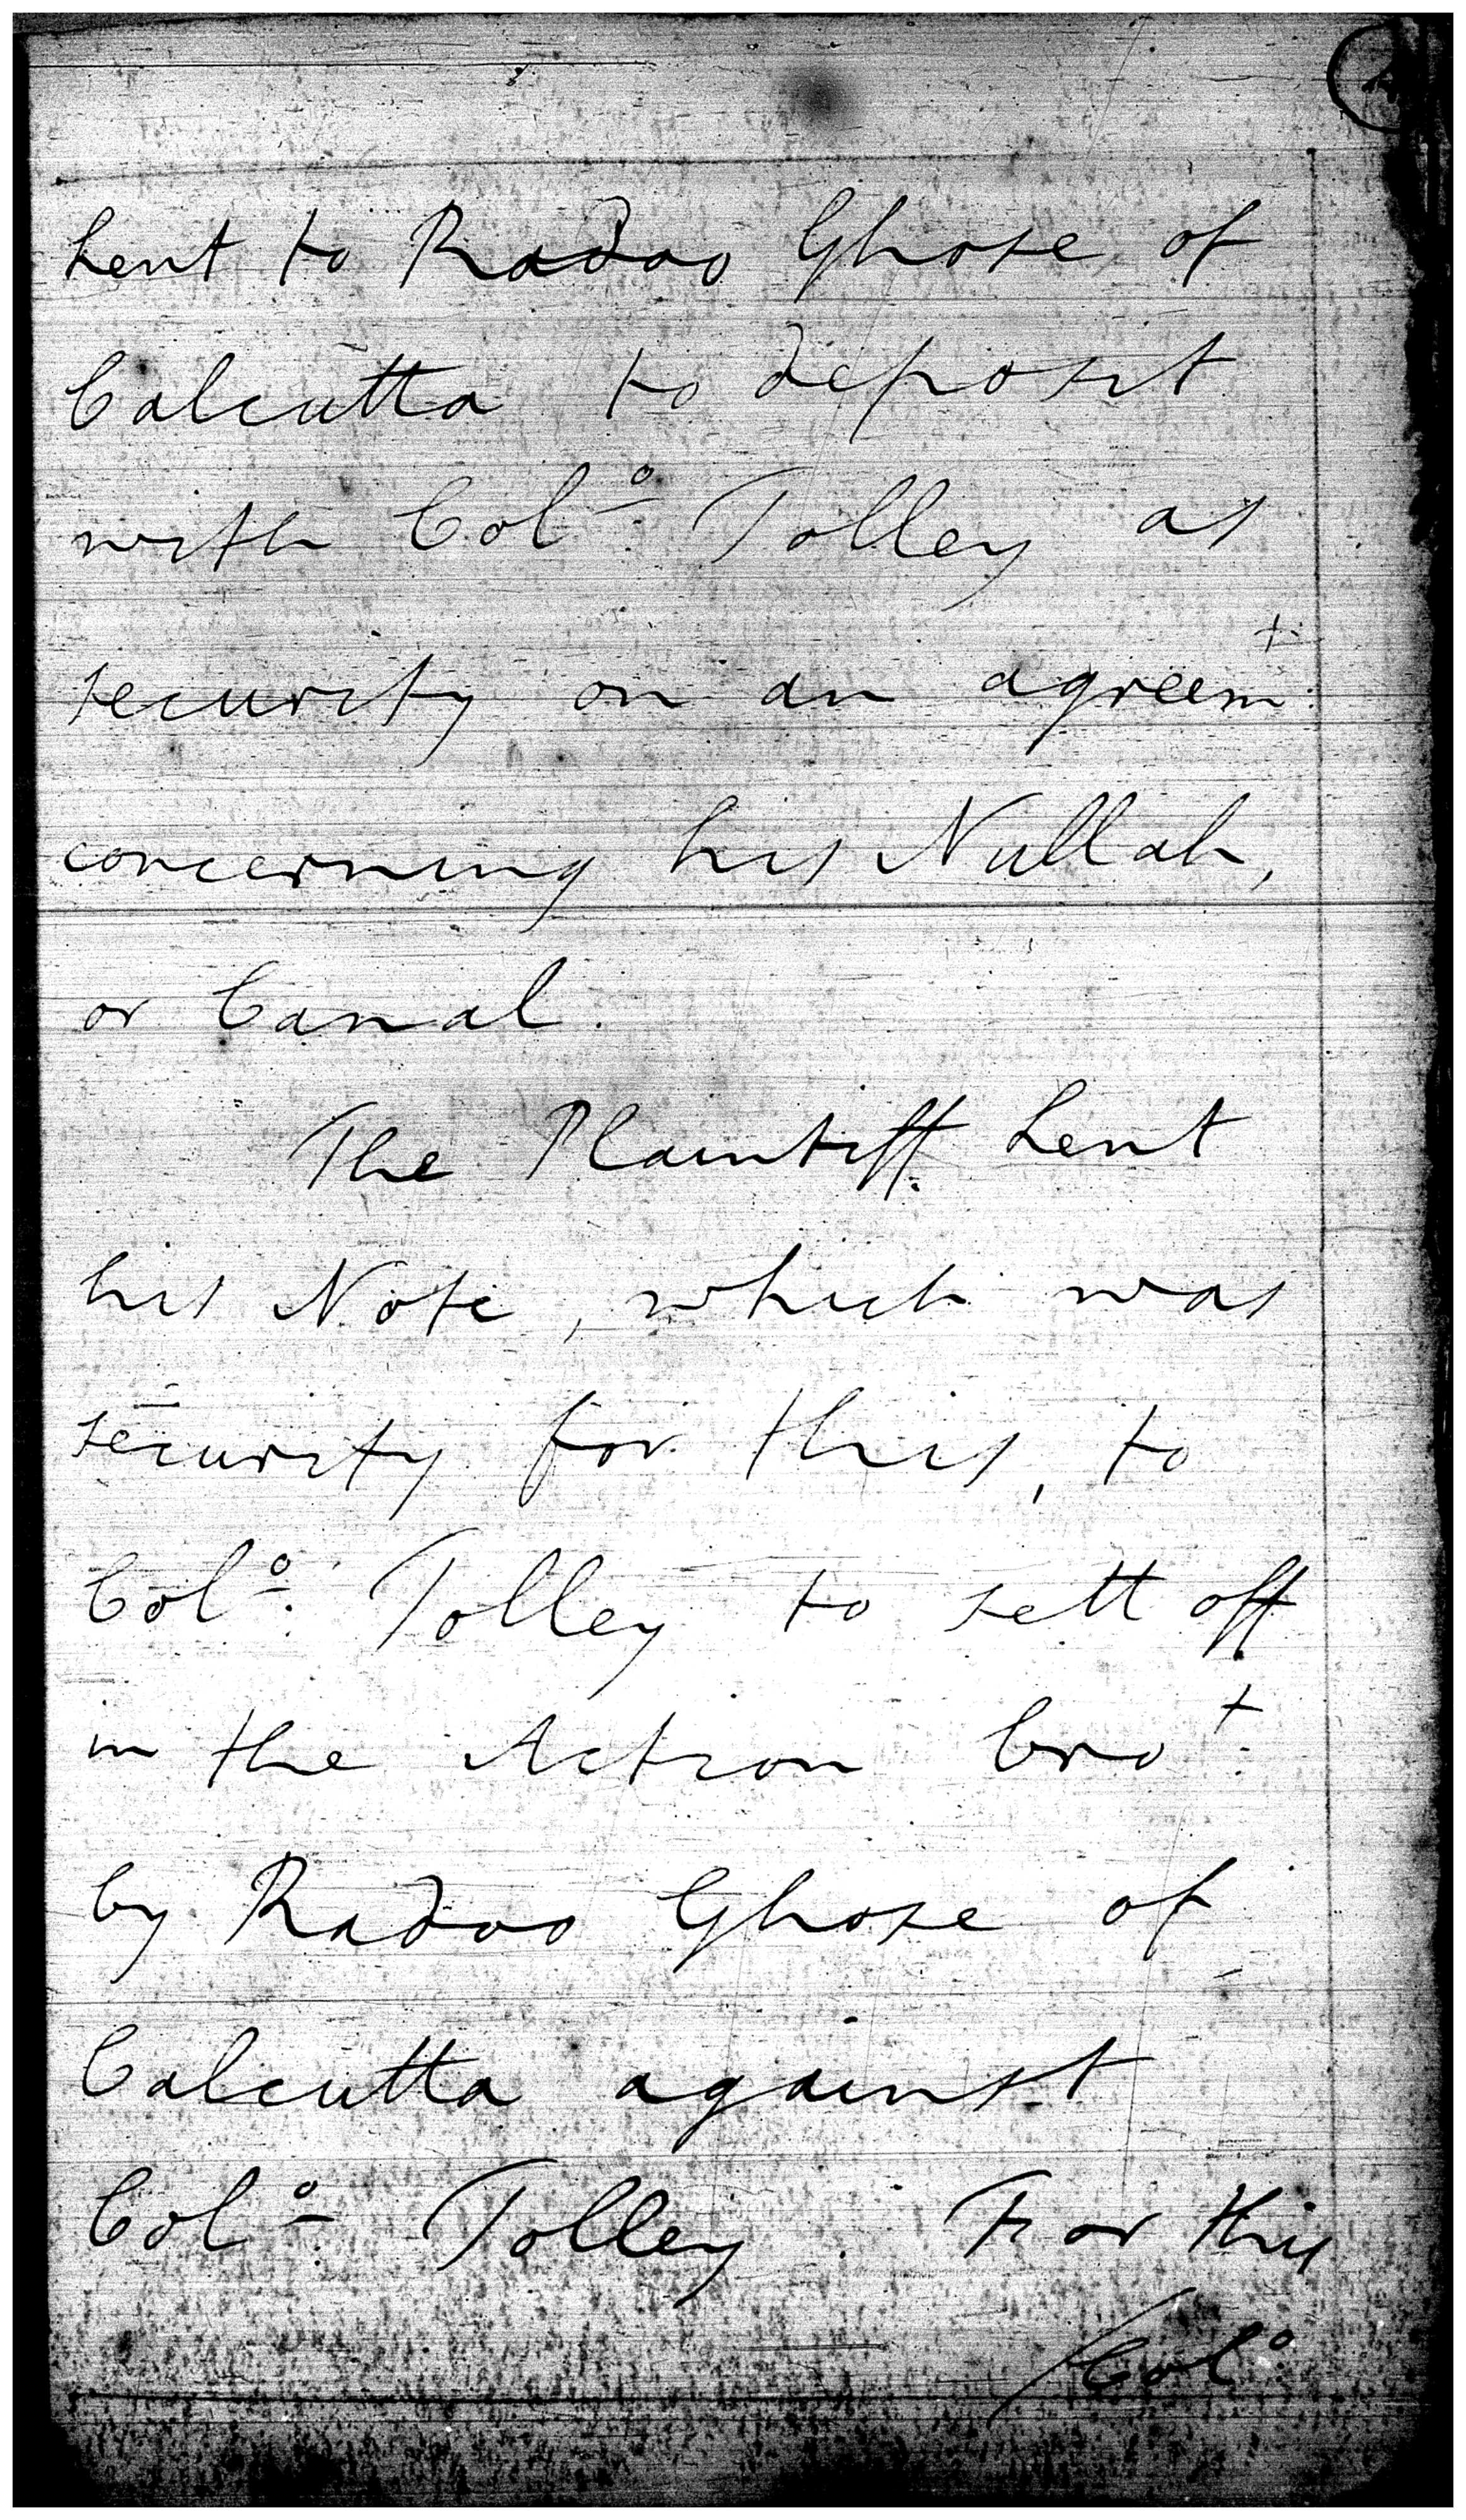 Lent to Radoo Ghose of
Calcutta to deposit
with Colº. Tolley as
security on an agreemt.
concerning his Nullah,
or Canal.
The Plaintiff Lent
his Note, which was
security for this, to
Colº. Tolley to sett off
in the Action brot.
by Radoo Ghose of
Calcutta against
Colº. Tolley. For this
/Colº.